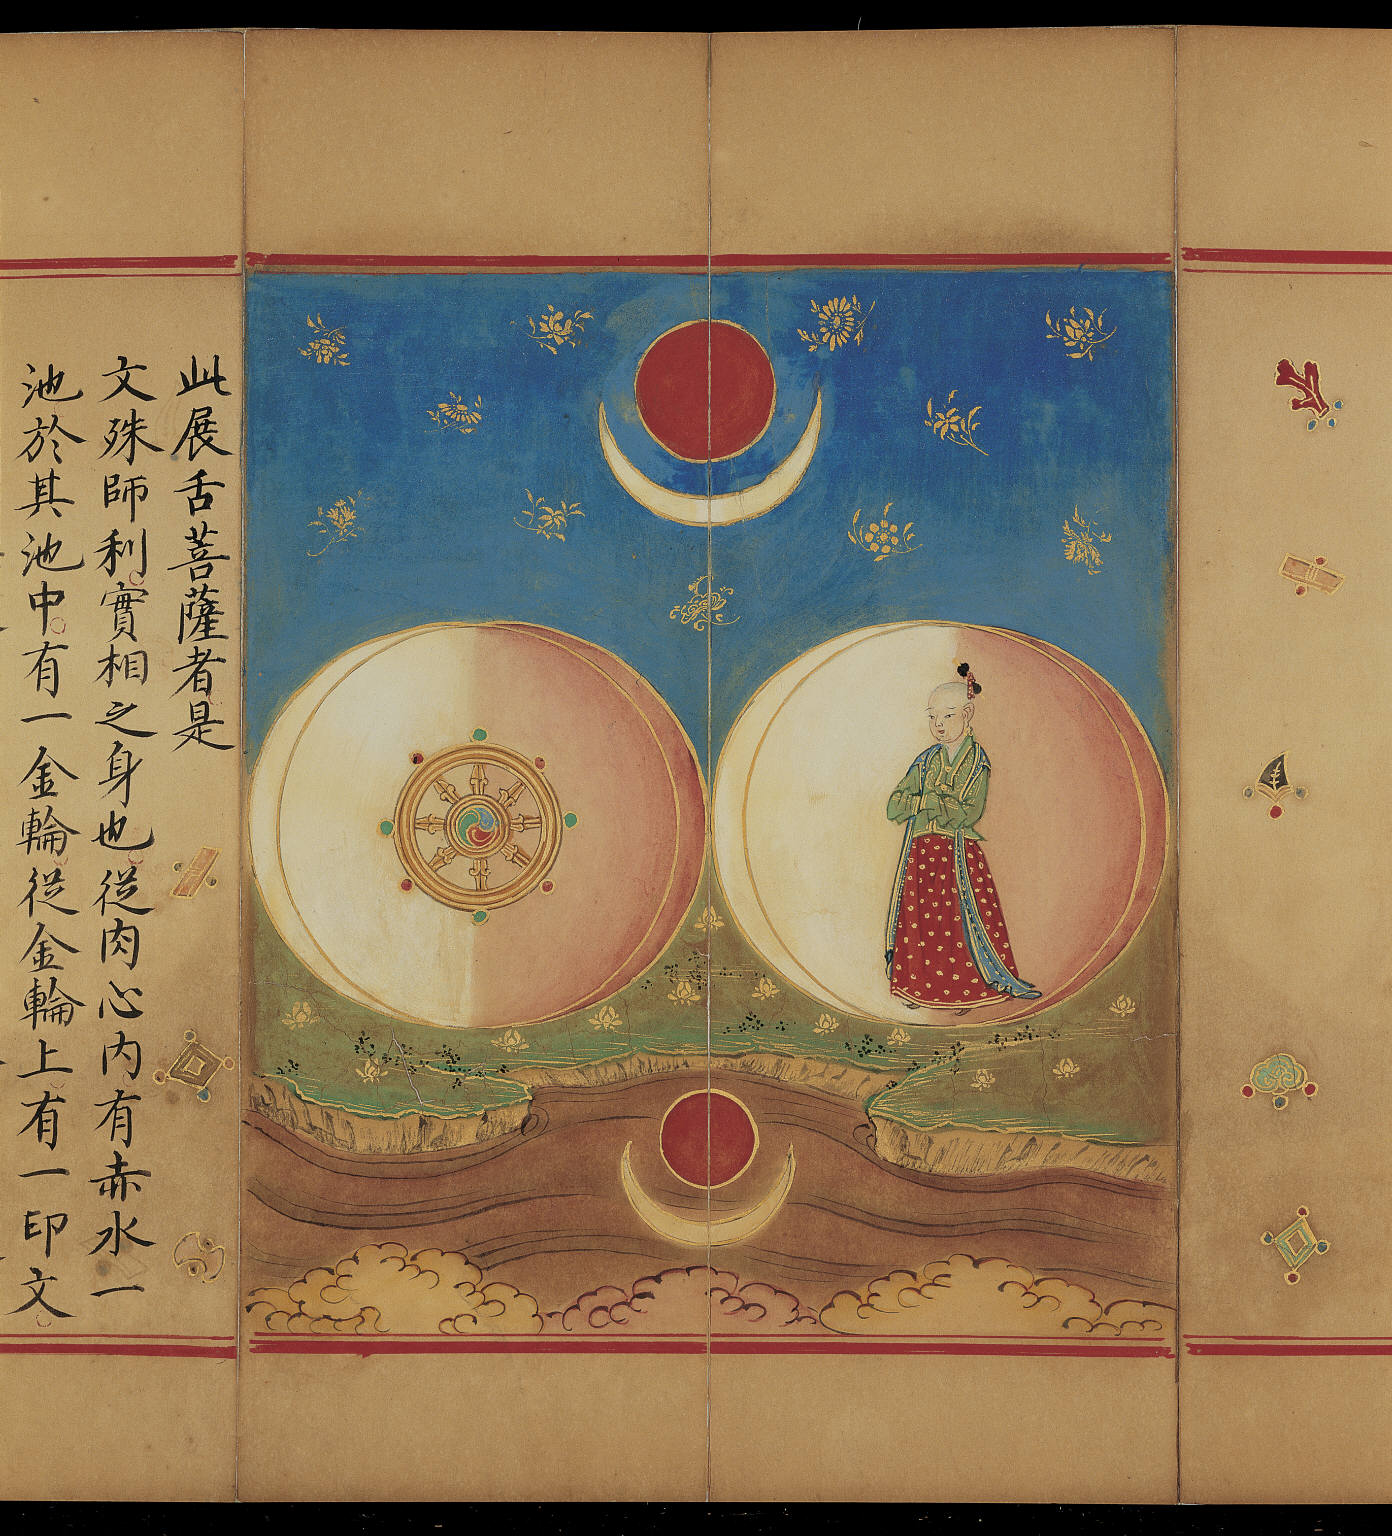 此展舌菩薩者是
文殊師利實相之身也從肉心内有赤水一
池於其池中有一金輪從金輪上有一印文